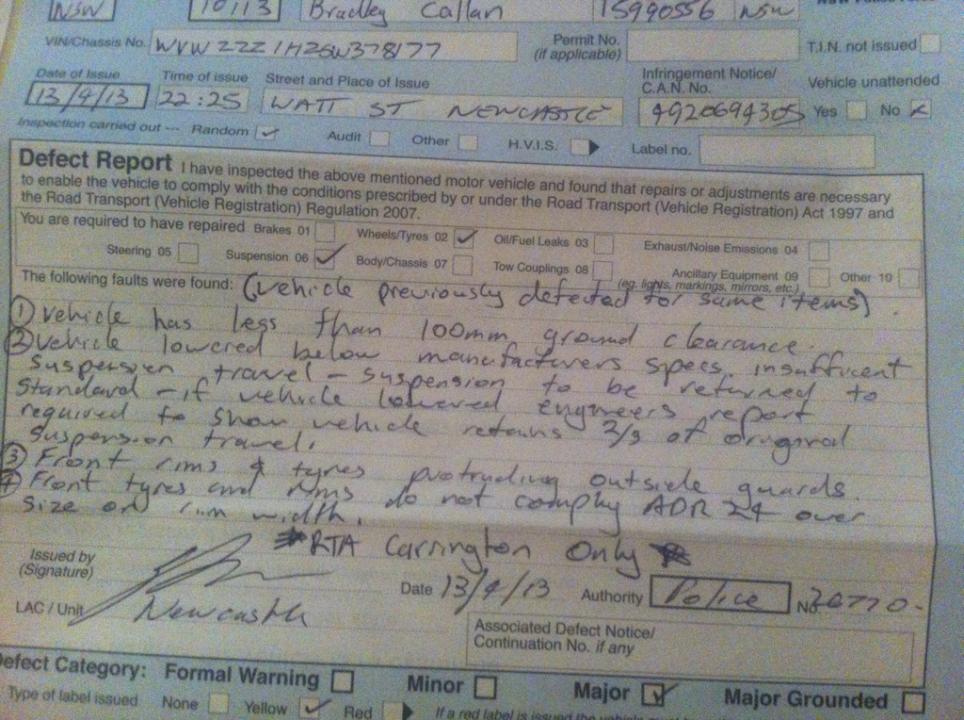 NSW 10113 Bradley Callan 15990556 NSW
VIN/Chassis No. WVWZZZ1HZSW378177 Permit No. (if applicable) T.I.N. not issued
Date of Issue Time of issue Street and Place of Issue Infringement Notice/ C.A.N. No. Vehicle unattended
13/4/13 22:25 WATT ST NEWCASTLE 4920694305 Yes No
Inspection carried out --- Random Audit Other H.V.I.S. Label no.
Defect Report I have inspected the above mentioned motor vehicle and found that repairs or adjustments are necessary
to enable the vehicle to comply with the conditions prescribed by or under the Road Transport (Vehicle Registration) Act 1997 and
the Road Transport (Vehicle Registration) Regulation 2007.
You are required to have repaired Brakes 01 Wheels/Tyres 02 Oil/Fuel Leaks 03 Exhaust/Noise Emissions 04
Steering 05 Suspension 06 Body/Chassis 07 Tow Couplings 08 Ancillary Equipment 09 Other 10
(eg. lights, markings, mirrors, etc.)
The following faults were found: (vehicle previously defected for same items).
① Vehicle has less than 100mm ground clearance.
② Vehicle lowered below manufacturers specs. insufficent
suspension travel - suspension to be returned to
standard - if vehicle lowered engineers report
required to show vehicle retains 2/3 of original
suspension travel.
③ Front rims & tyres protruding outside guards.
④ Front tyres and rims do not comply ADR 24 over
size on rim width.
RTA Carrington Only
Issued by
(Signature)
Date 13/4/13 Authority Police No
LAC / Unit Newcastle
Associated Defect Notice/
Continuation No. if any
Defect Category: Formal Warning Minor Major Major Grounded
Type of label issued None Yellow Red If a red label is issued the vehicle must